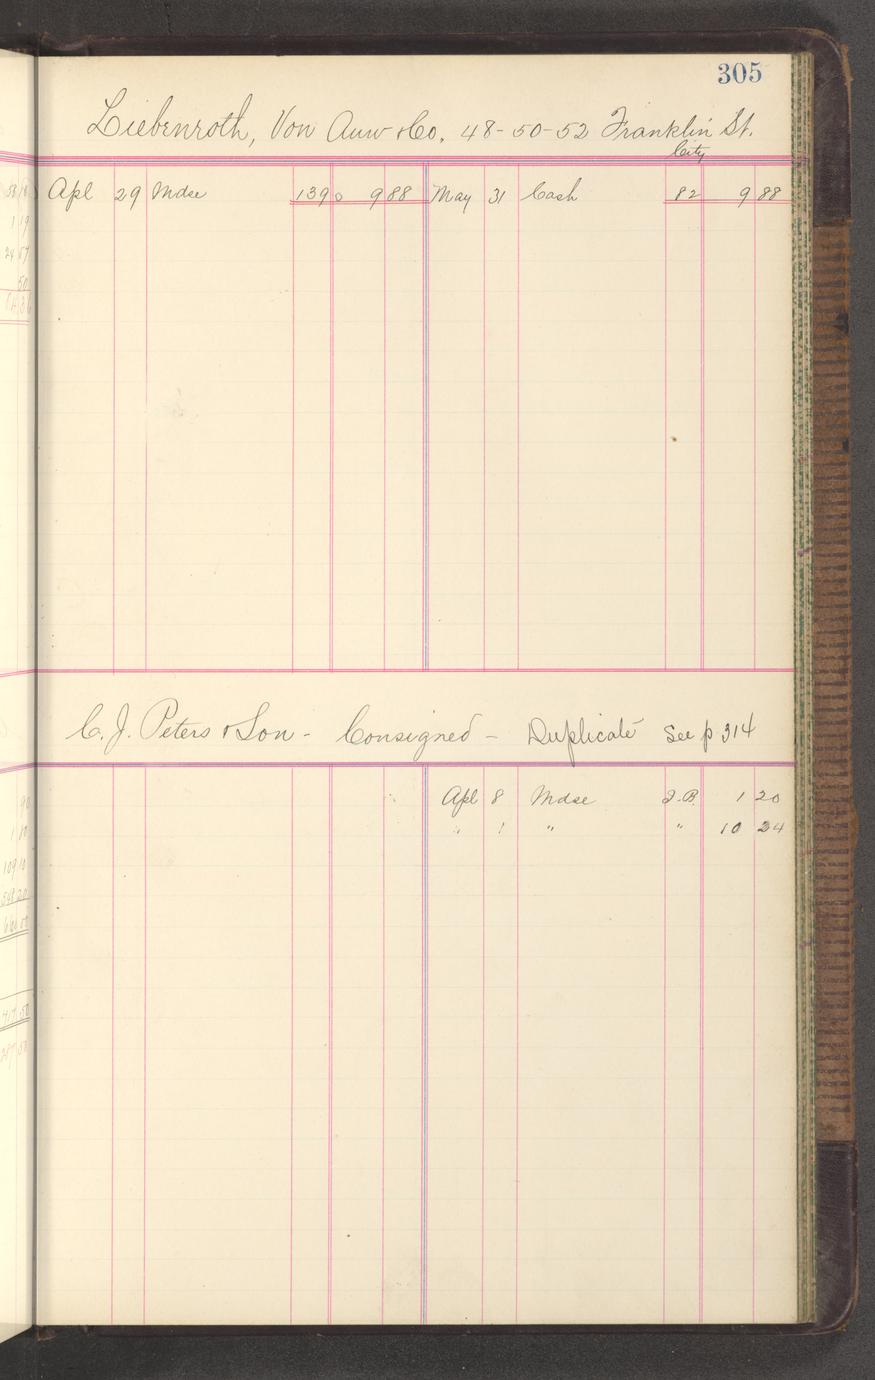 305
Liebenroth, Von Auw & Co. 48-50-52 Franklin St.
City
Apl 29 Mdse 139 0 9 88 May 31 Cash 82 9 88
C. J. Peters & Son - Consigned - Duplicate See p 314
Apl 8 Mdse J.B. 1 20
" " " " 10 24